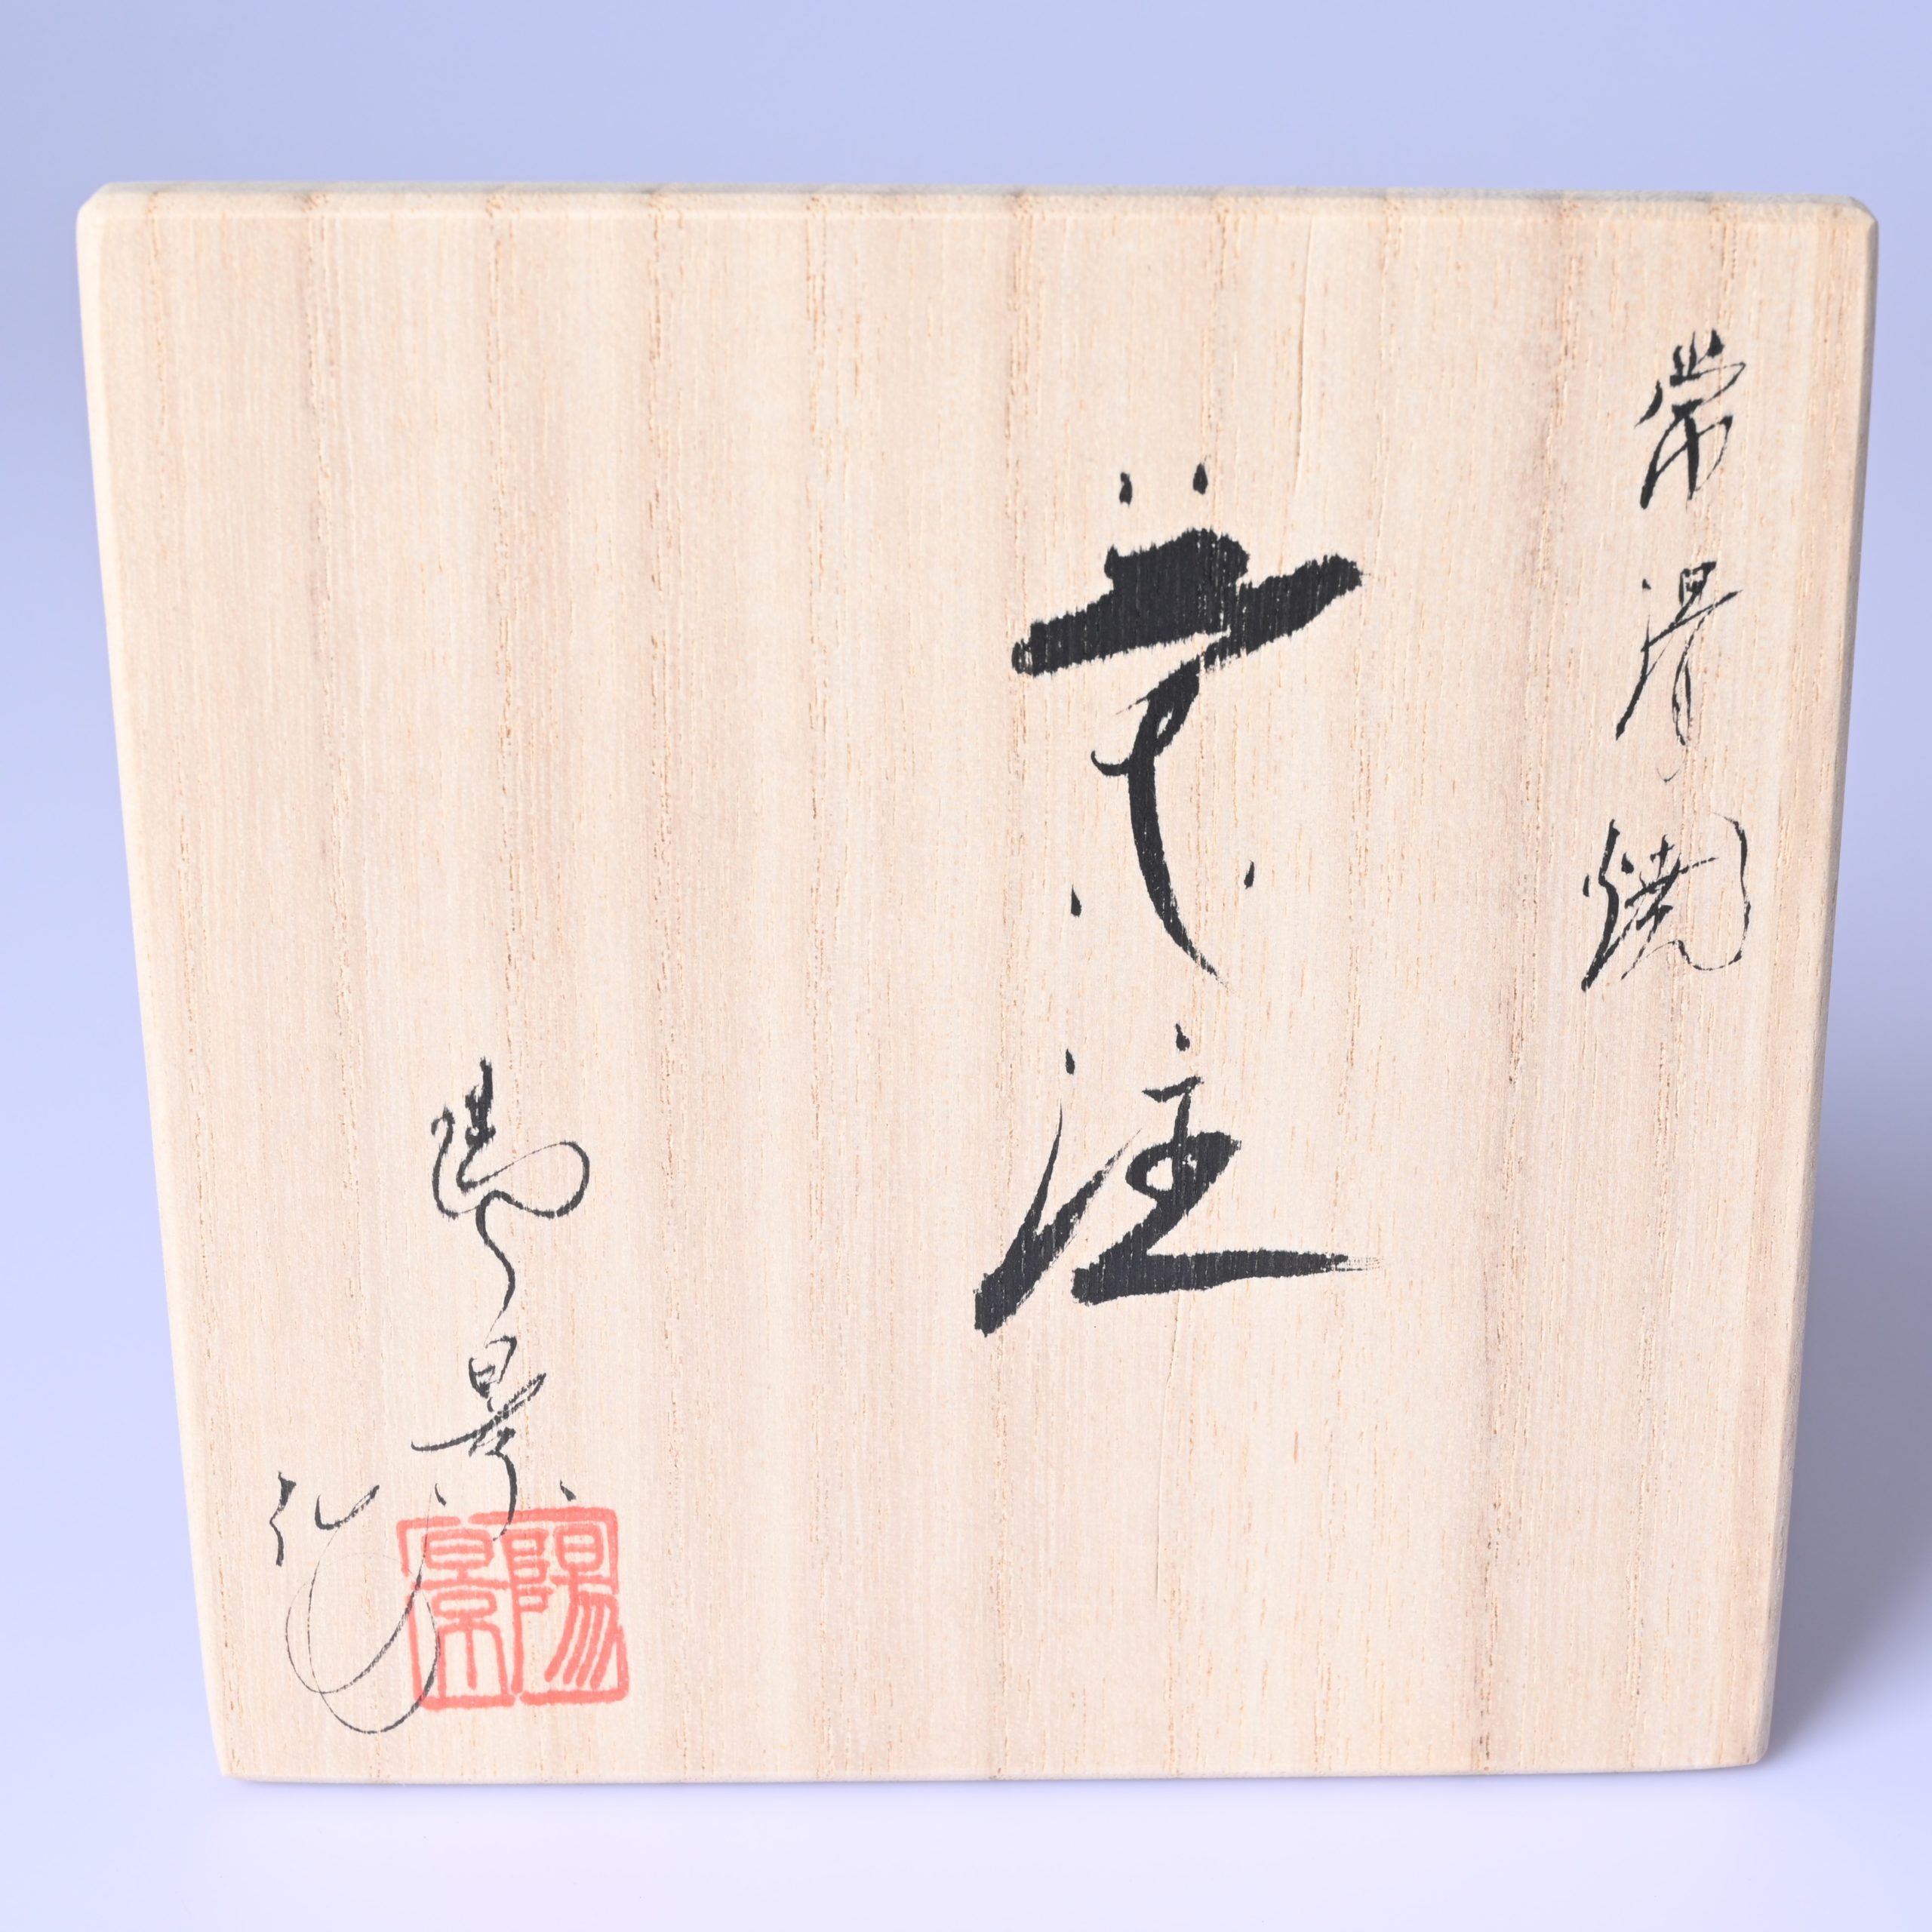 常滑焼
茶注
陽景作
陽景